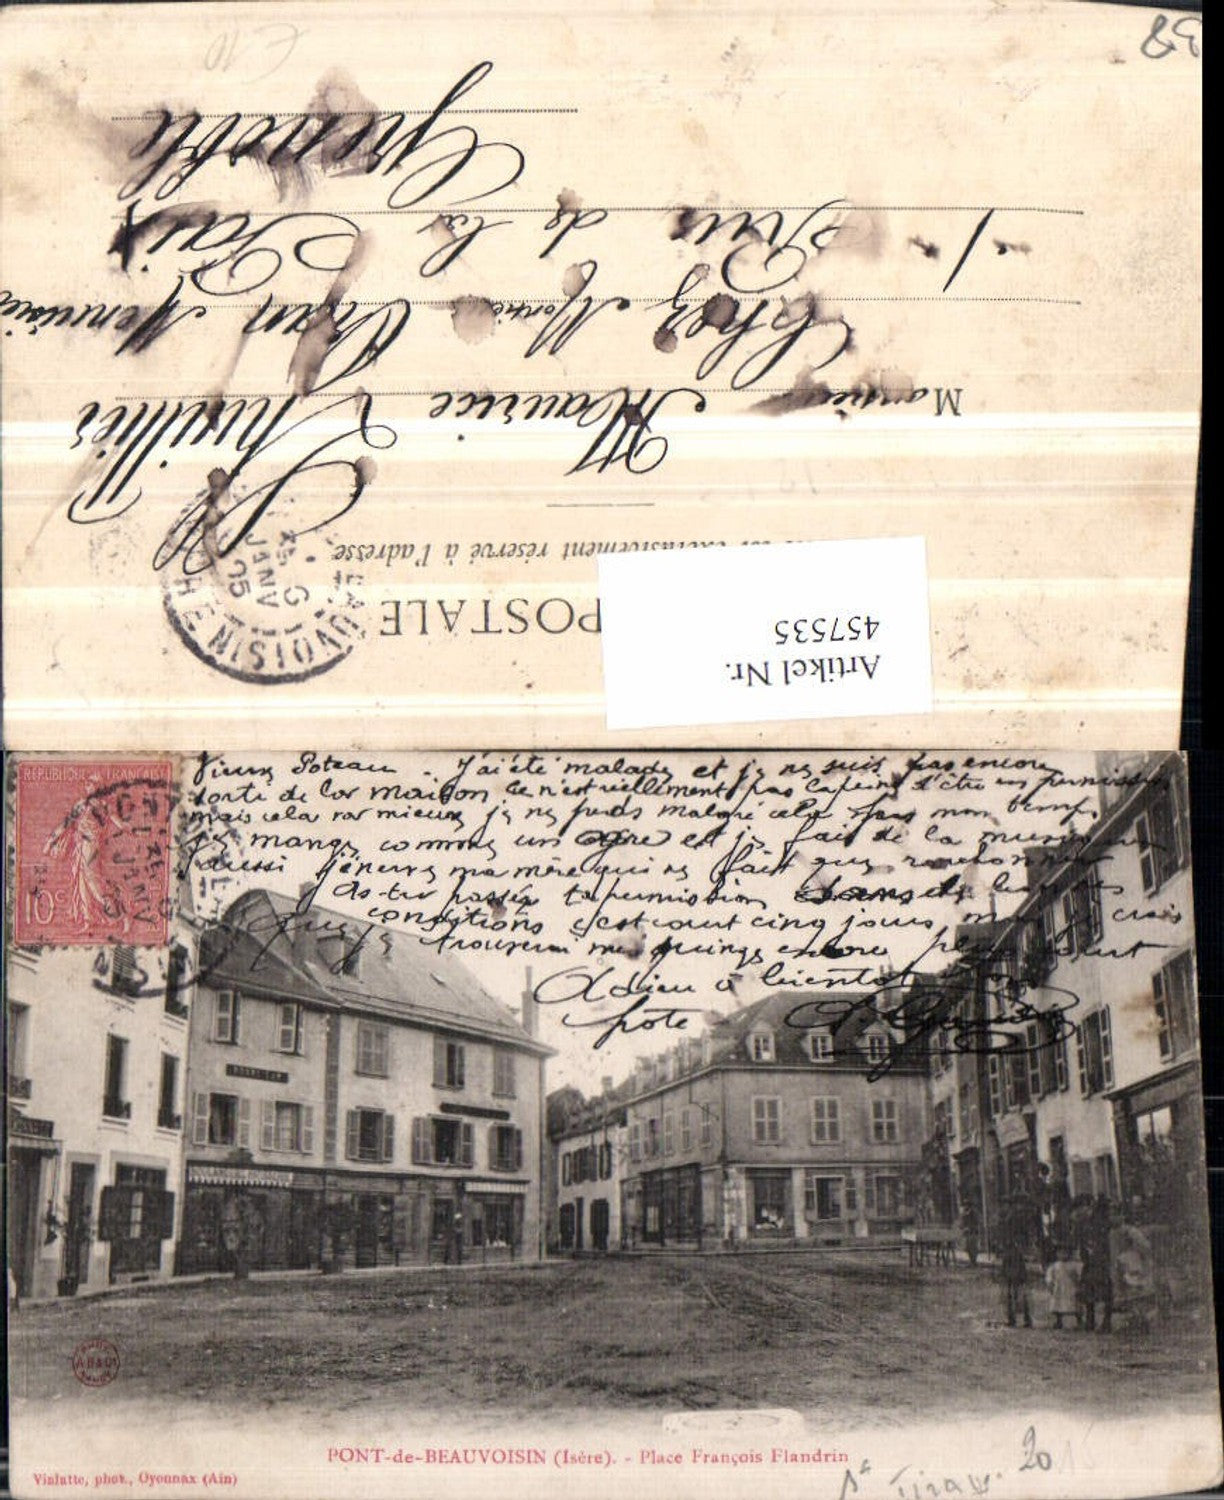 38
Artikel Nr.
457535
POSTALE
est exclusivement réservé à l'adresse
6
JANV
05
Maurice Thuillier
Chez Monsieur
1 Rue de la Paix
Grenoble
REPUBLIQUE FRANCAISE
10c
Vieux Poteau. J'ai été malade et je ne suis pas encore
sorti de la maison ce n'est réellement pas la peine d'être en permission
mais cela va mieux je ne perds malgré cela pas mon temps
je mange comme un ogre et je fais de la musique
aussi j'énerve ma mère qui ne fait que
As-tu passé ta permission dans de bonnes
conditions c'est court cinq jours mais je crois
que je trouverai me quinze encore plus court
Adieu à bientôt ton
pote
PONT-de-BEAUVOISIN (Isère). - Place François Flandrin
Vialatte, phot., Oyonnax (Ain)
20